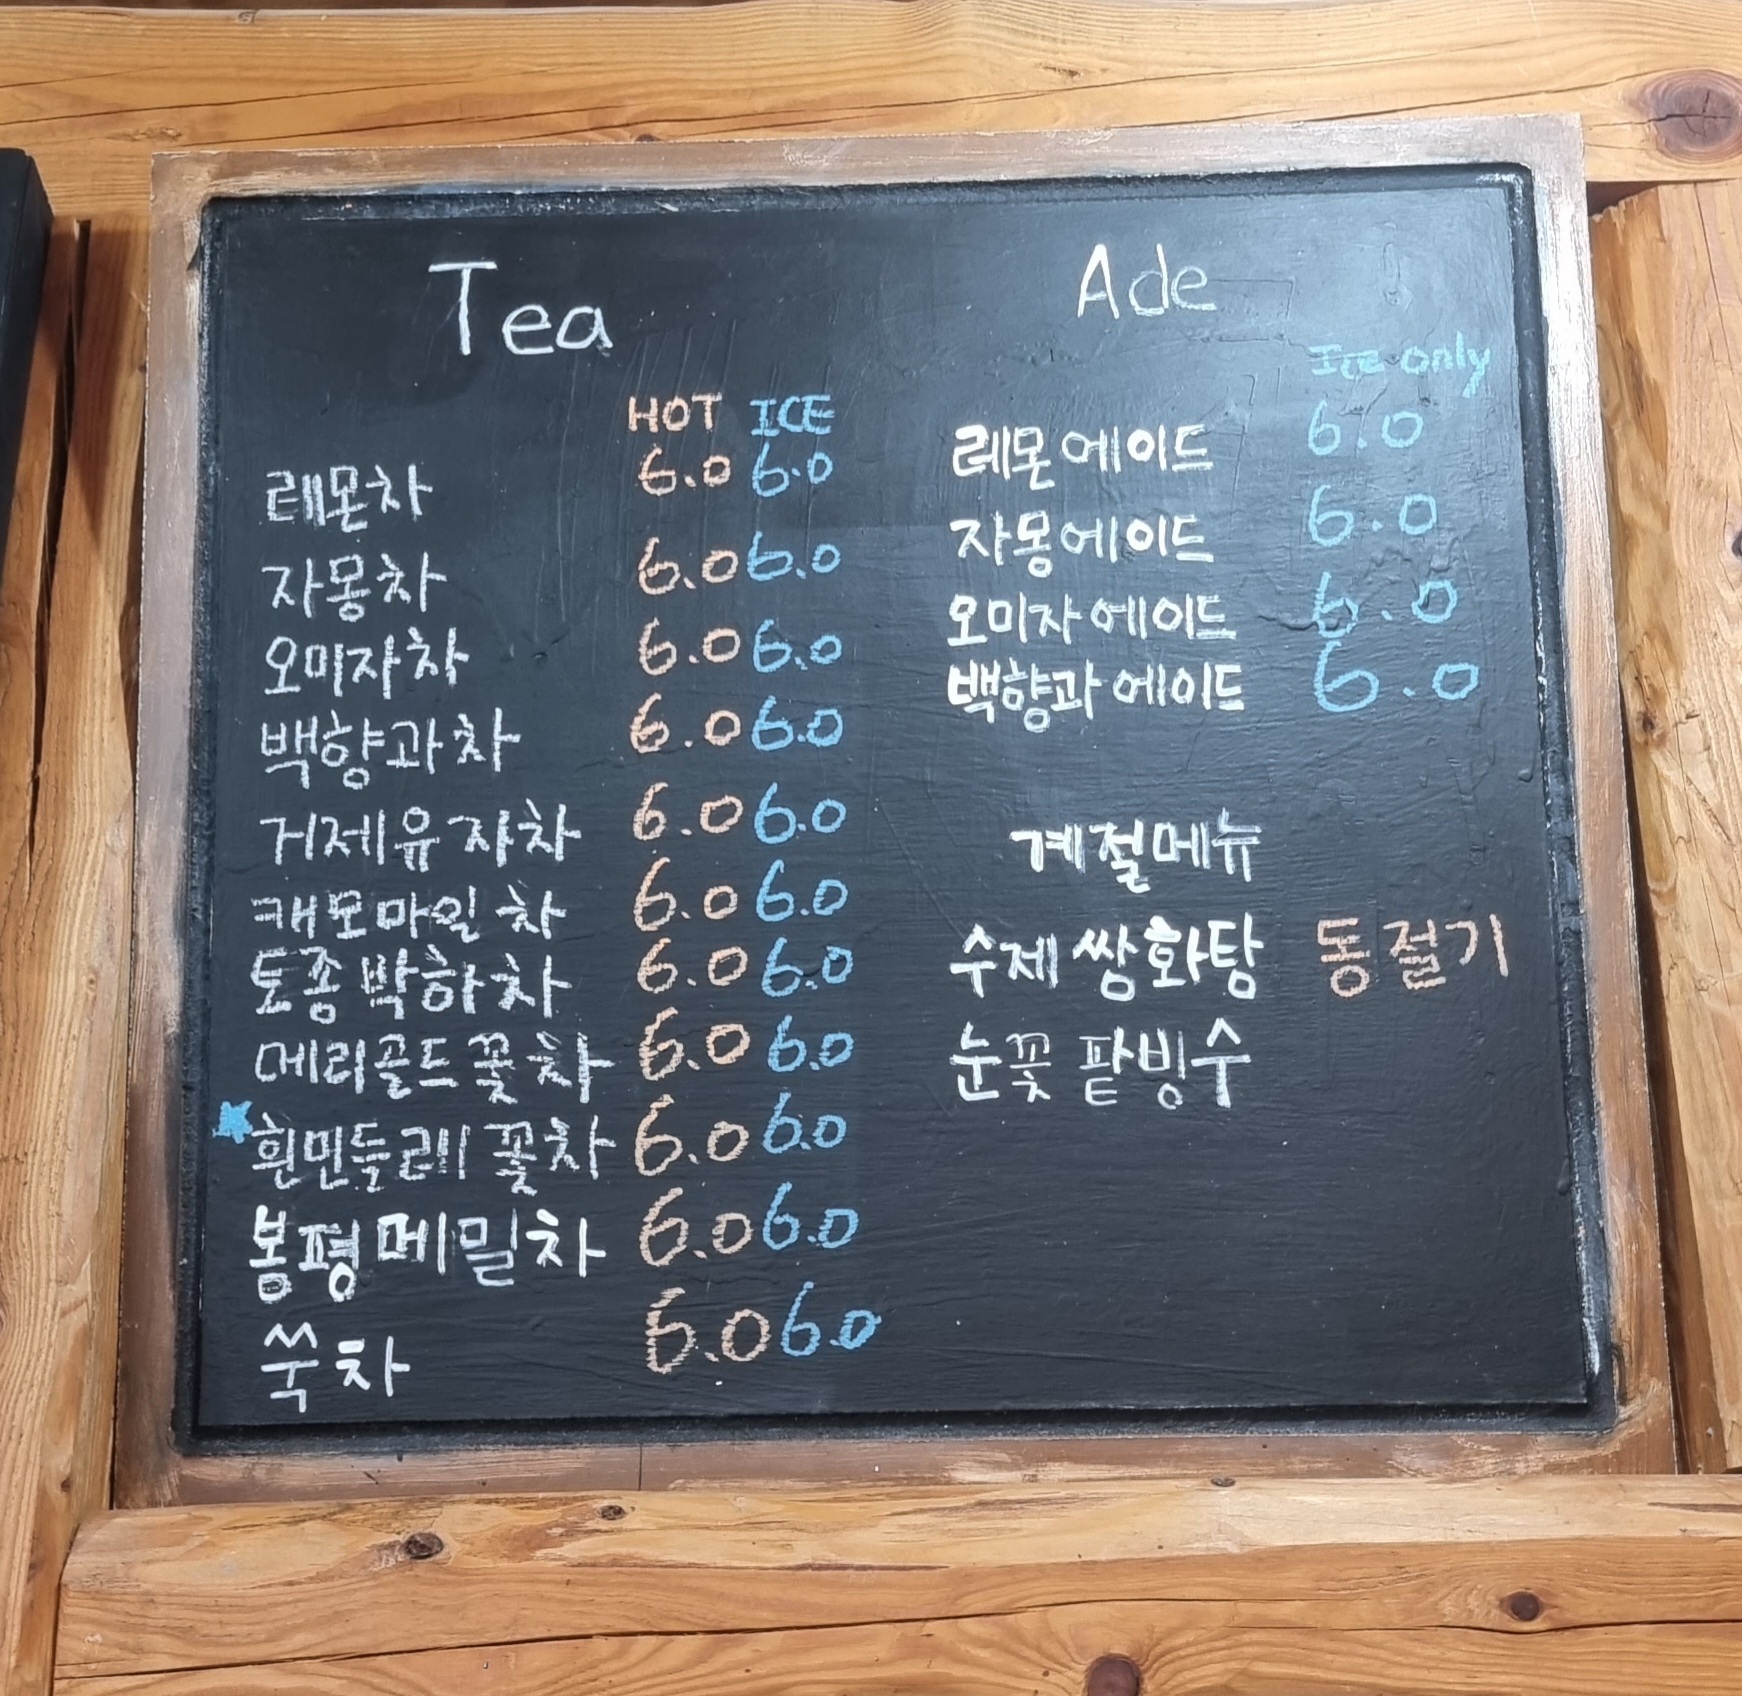 Tea
HOT ICE
레몬차 6.0 6.0
자몽차 6.0 6.0
오미자차 6.0 6.0
백향과차 6.0 6.0
거제유자차 6.0 6.0
캐모마일차 6.0 6.0
토종박하차 6.0 6.0
메리골드꽃차 6.0 6.0
흰민들레꽃차 6.0 6.0
봄평메밀차 6.0 6.0
쑥차 6.0 6.0
Ade
Ice only
레몬에이드 6.0
자몽에이드 6.0
오미자에이드 6.0
백향과에이드 6.0
계절메뉴
수제쌍화탕 동절기
눈꽃 팥빙수